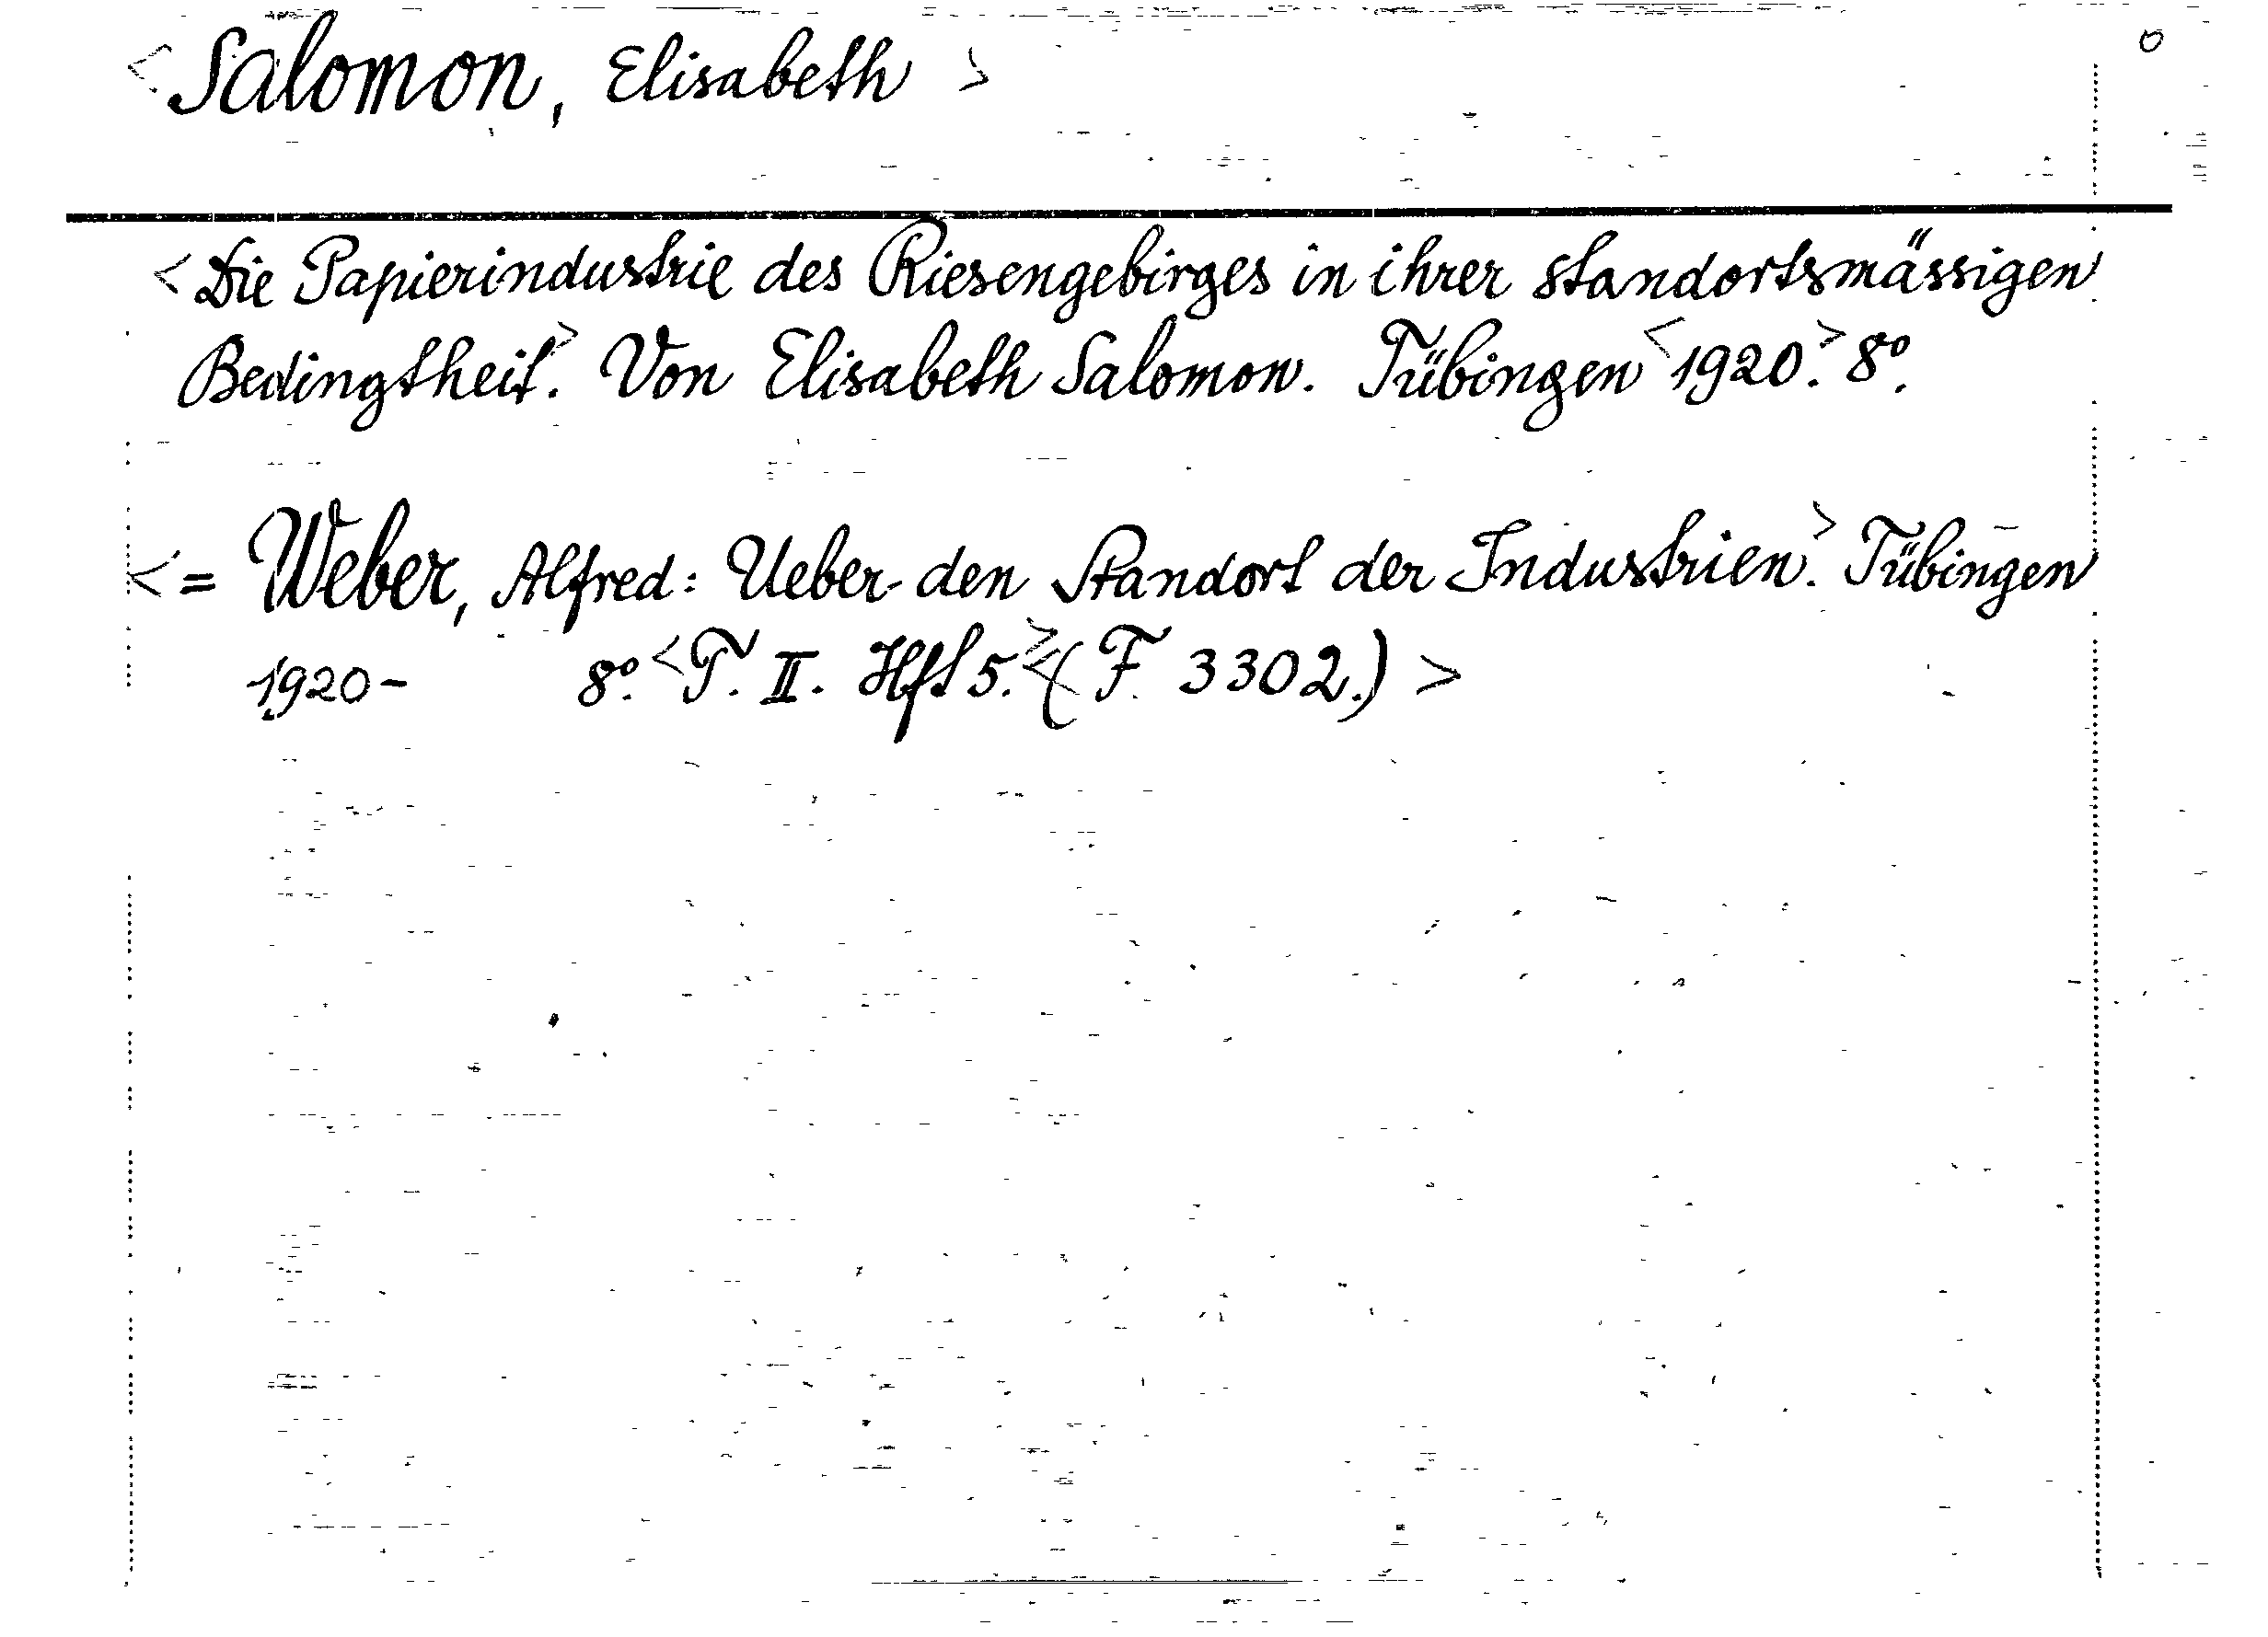 <Salomon, Elisabeth>
<Die Papierindustrie des Riesengebirges in ihrer standortsmässigen
Bedingtheit.> Von Elisabeth Salomon. Tübingen <1920.> 8º.
<= Weber, Alfred: Ueber den Standort der Industrien.> Tübingen
1920- 8º. <T. II. Hft 5.> <(F. 3302.)>